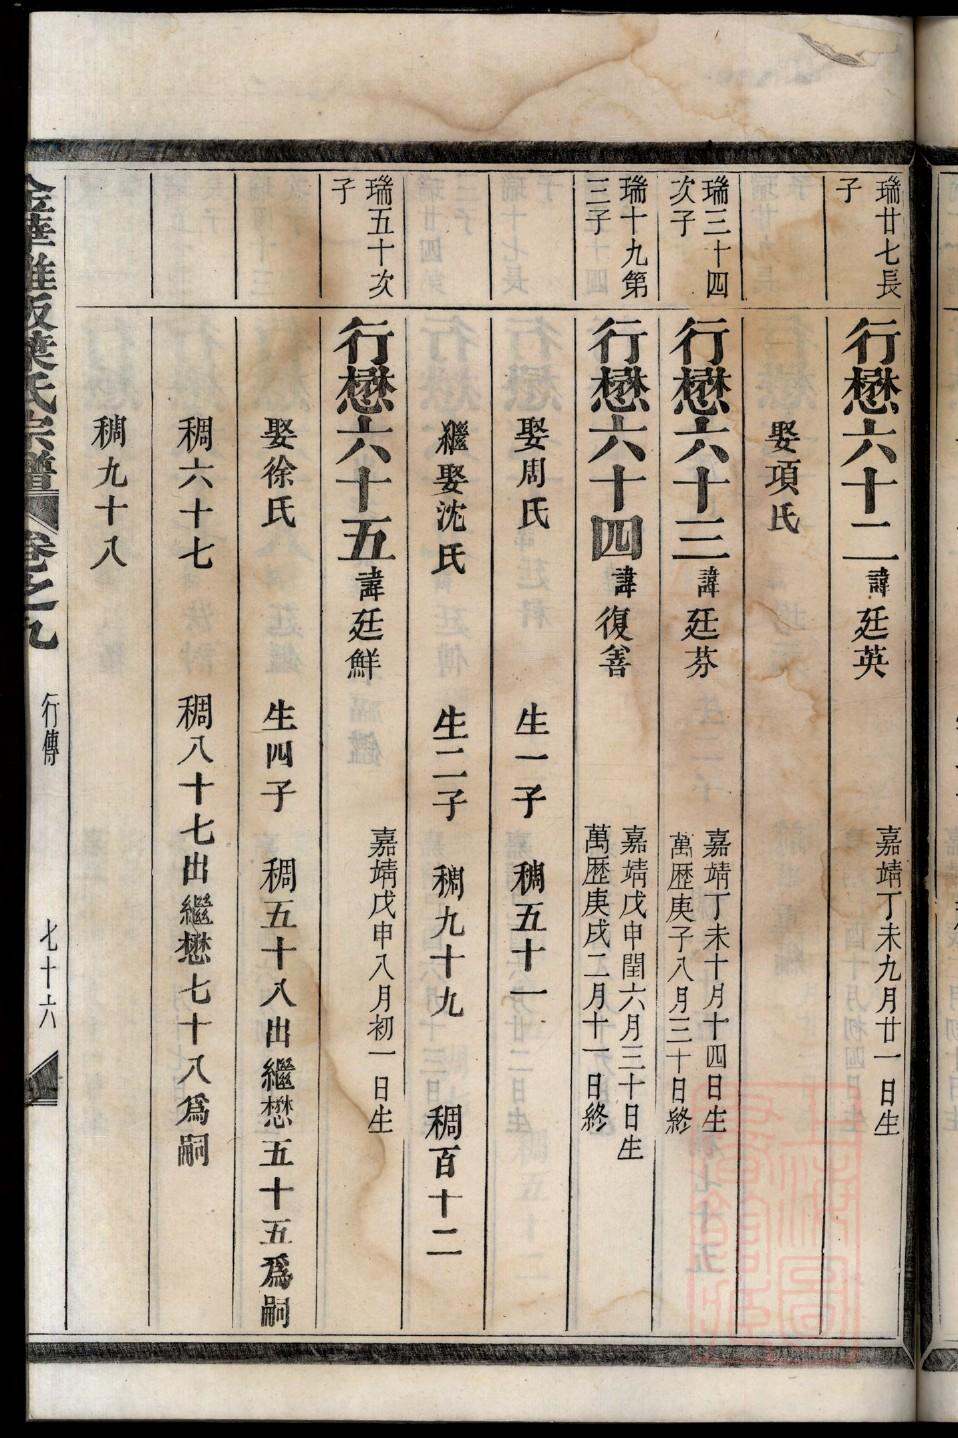 瑞廿七長
子
行懋六十二諱廷英
嘉靖丁未九月廿一日生
娶項氏
瑞三十四
次子
行懋六十三諱廷芬
嘉靖丁未十月十四日生
萬歷庚子八月三十日終
瑞十九第
三子
行懋六十四諱復善
嘉靖戊申閏六月三十日生
萬歷庚戌二月十一日終
娶周氏 生一子 稠五十一
繼娶沈氏 生二子 稠九十九 稠百十二
瑞五十次
子
行懋六十五諱廷鮮
嘉靖戊申八月初一日生
娶徐氏 生四子 稠五十八出繼懋五十五爲嗣
稠六十七 稠八十七出繼懋七十八爲嗣
稠九十八
金華 葉氏宗譜 卷之九 行傳 七十六